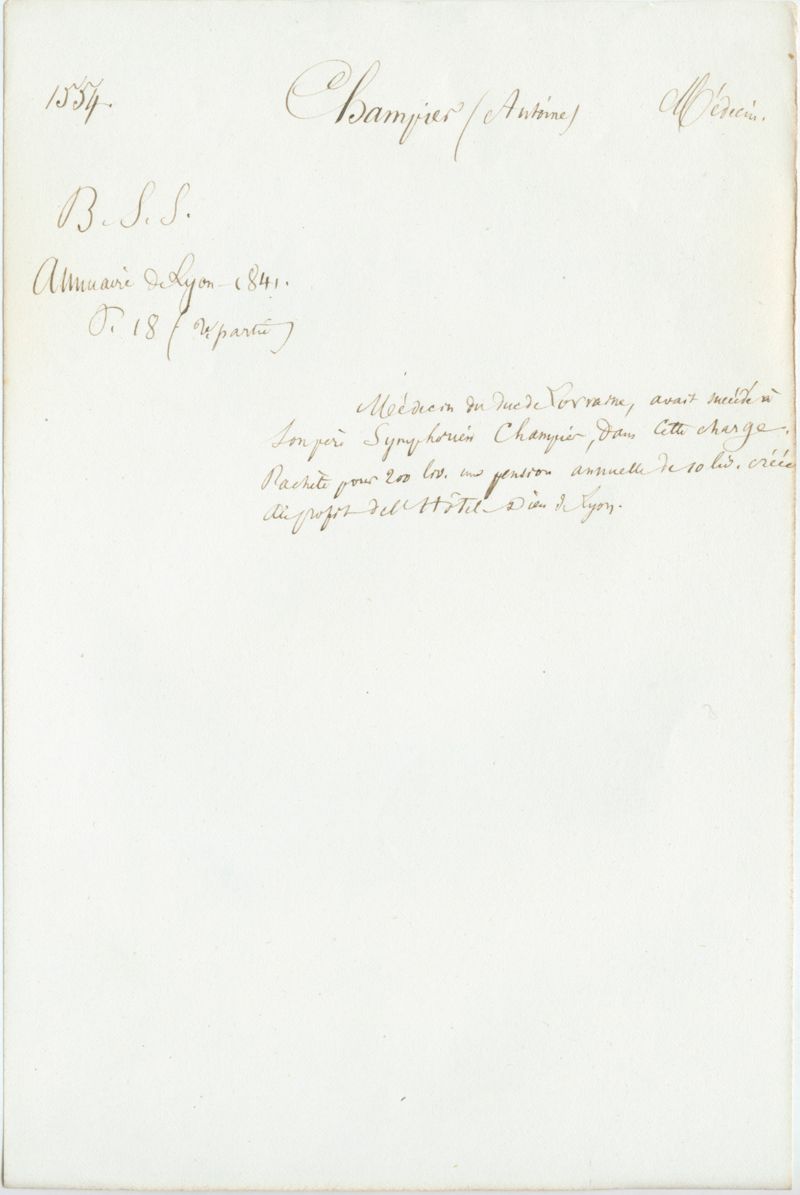 1554. Champier (Antoine) Médecin.
B. S. S.
Annuaire de Lyon - 1841.
P. 18 (2e. partie)
Médecin du duc de Lorraine, avait succédé à
son père Symphorien Champier, dans cette charge.
Rachète pour 200 liv. une pension annuelle de 10 liv. créée
au profit de l'Hôtel-Dieu de Lyon.